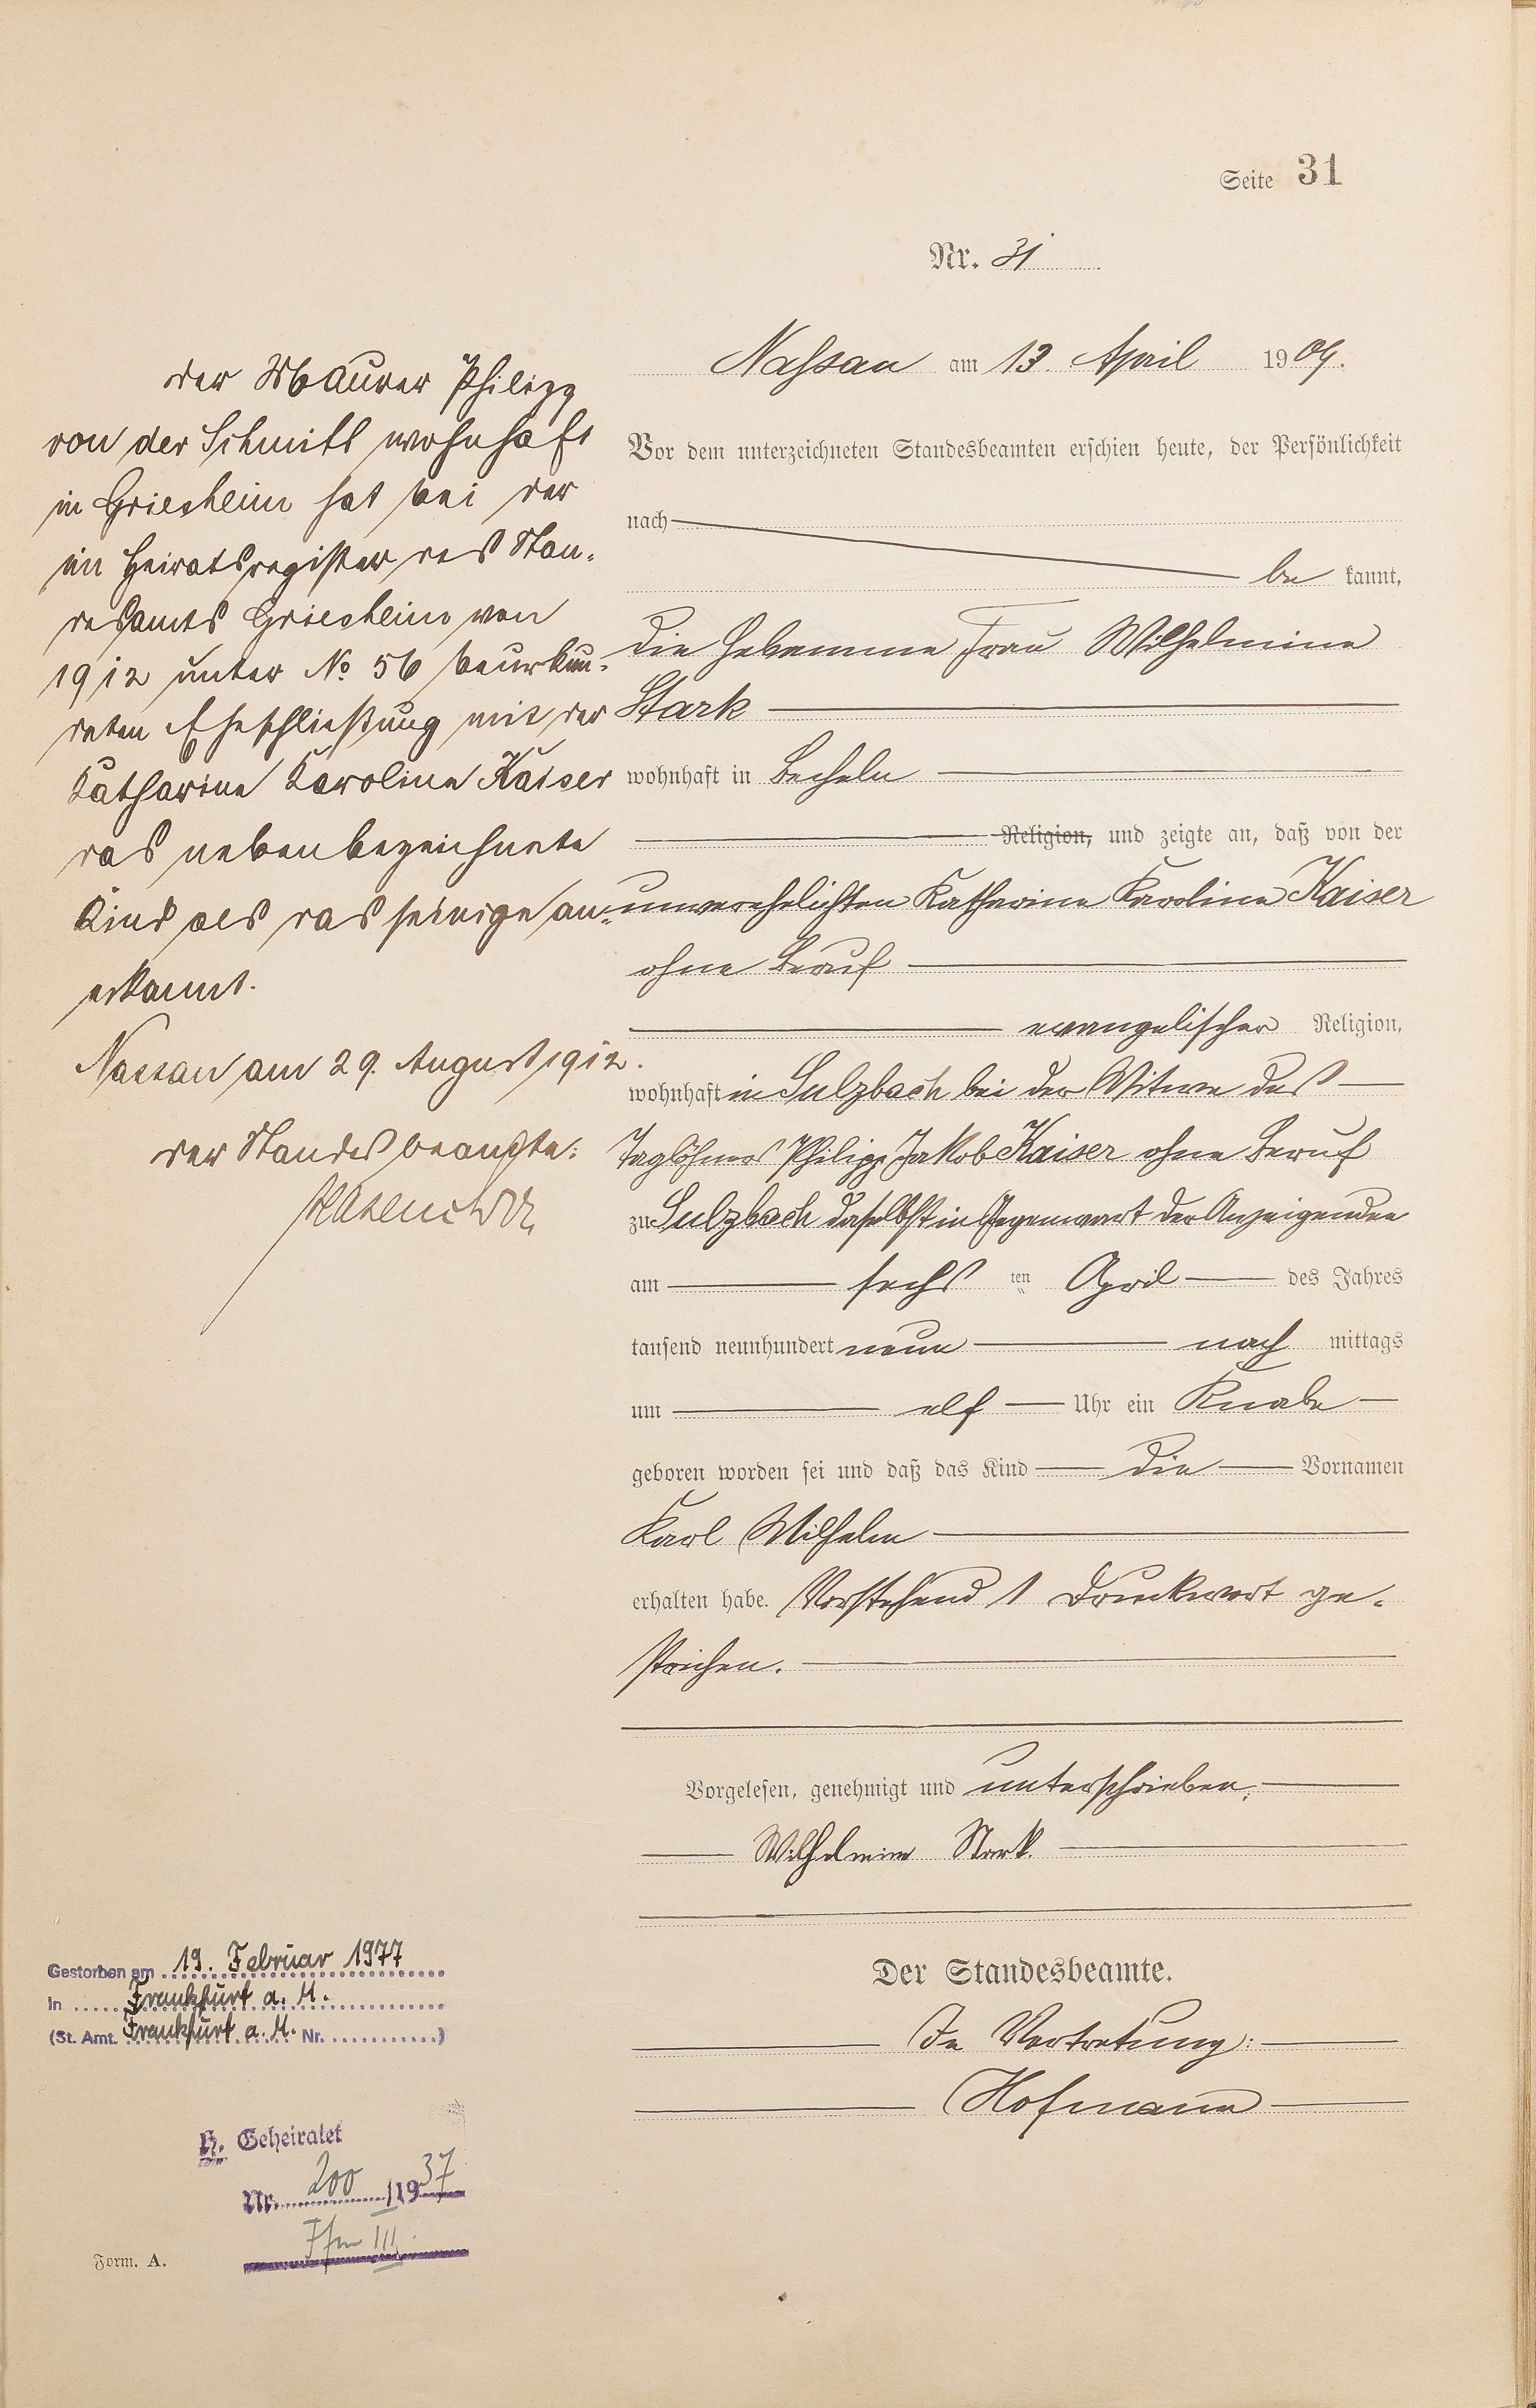 Seite 31
Nr. 31
Nassau am 13. April 1909.
Vor dem unterzeichneten Standesbeamten erschien heute, der Persönlichkeit
nach
be kannt,
die Hebamme Frau Wilhelmine
Stark
wohnhaft in Becheln
Religion, und zeigte an, daß von der
unverehelichten Katharine Karoline Kaiser
ohne Beruf
evangelischer Religion,
wohnhaft in Sulzbach bei der Witwe des
Taglöhners Philipp Jakob Kaiser ohne Beruf
zu Sulzbach daselbst in Gegenwart der Anzeigenden
am sechs ten April des Jahres
tausend neunhundert neun nach mittags
um elf Uhr ein Knabe
geboren worden sei und daß das Kind die Vornamen
Karl Wilhelm
erhalten habe. Vorstehend 1 Druckwort ge-
strichen.
Vorgelesen, genehmigt und unterschrieben.
Wilhelmine Stark.
Der Standesbeamte.
In Vertretung:
Hofmann
der Maurer Philipp
von der Schmitt wohnhaft
in Griesheim hat bei der
im Heiratsregister des Stan-
desamts Griesheim von
1912 unter No 56 beurkun-
deten Eheschließung mit der
Katharine Karoline Kaiser
das nebenbezeichnete
Kind als das seinige an-
erkannt.
Nassau am 29. August 1912.
der Standesbeamte:
Gestorben am 19. Februar 1977
in Frankfurt a. M.
(St. Amt. Frankfurt a. M. Nr. )
K. Geheiratet
Nr. 200 / 1937
Ffm III
Form. A.